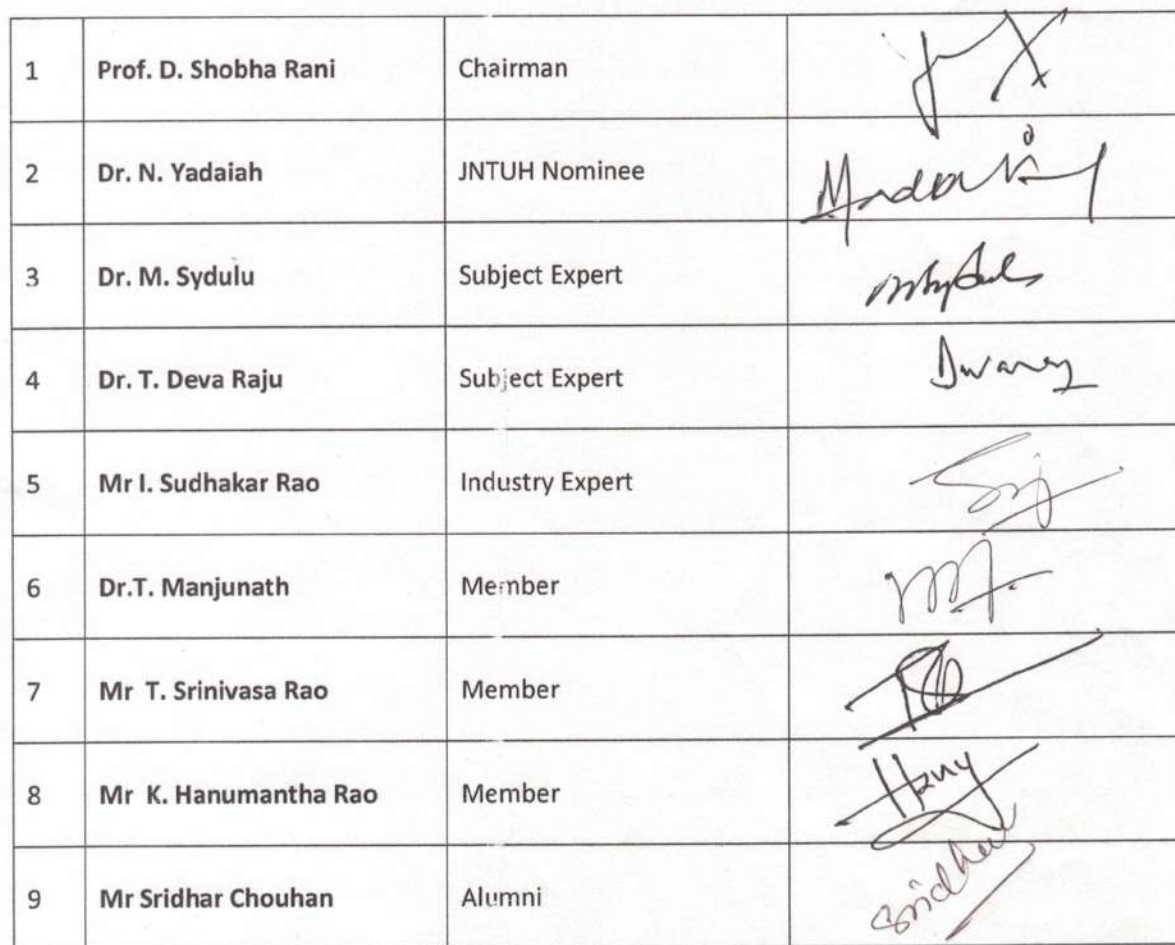 1 Prof. D. Shobha Rani Chairman
2 Dr. N. Yadaiah JNTUH Nominee
3 Dr. M. Sydulu Subject Expert
4 Dr. T. Deva Raju Subject Expert
5 Mr I. Sudhakar Rao Industry Expert
6 Dr.T. Manjunath Member
7 Mr T. Srinivasa Rao Member
8 Mr K. Hanumantha Rao Member
9 Mr Sridhar Chouhan Alumni Sridhar